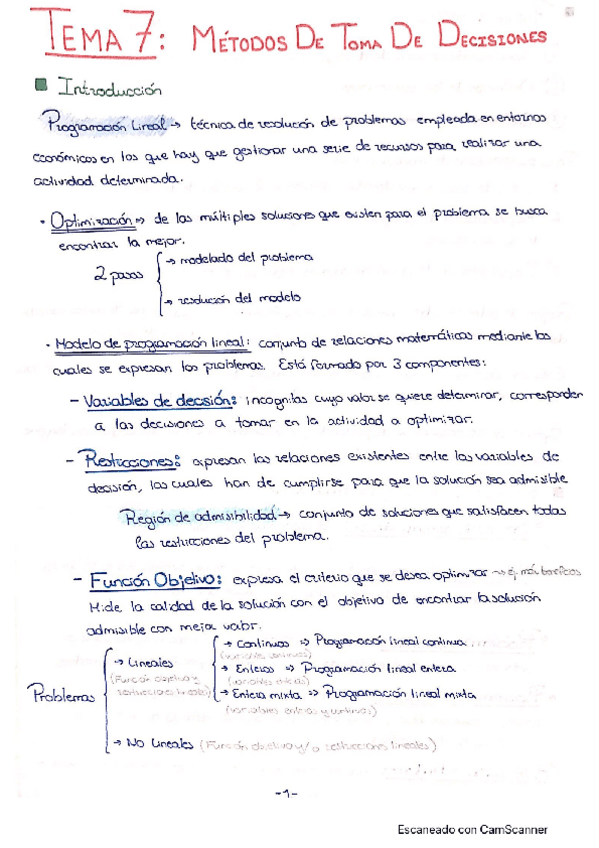 TEMA 7: MÉTODOS DE TOMA DE DECISIONES
Introducción
Programación Lineal → técnica de resolución de problemas empleada en entornos
económicos en los que hay que gestionar una serie de recursos para realizar una
actividad determinada.
· Optimización ⇒ de las múltiples soluciones que existen para el problema se busca
encontrar la mejor.
→ modelado del problema
2 pasos
→ resolución del modelo
· Modelo de programación lineal: conjunto de relaciones matemáticas mediante las
cuales se expresan los problemas. Está formado por 3 componentes:
- Variables de decisión: incognitas cuyo valor se quiere determinar, corresponden
a las decisiones a tomar en la actividad a optimizar.
- Restricciones: expresan las relaciones existentes entre las variables de
decisión, las cuales han de cumplirse para que la solución sea admisible
Región de admisibilidad → conjunto de soluciones que satisfacen todas
las restricciones del problema.
- Función Objetivo: expresa el criterio que se desea optimizar → ej más beneficios
Mide la calidad de la solución con el objetivo de encontrar la solución
admisible con mejor valor.
→ Continuos ⇒ Programación lineal continua
(variables continuas)
→ Lineales
→ Enteros ⇒ Programación lineal entera
(Función objetivo y
(variables enteras)
restricciones lineales)
→ Entera mixta ⇒ Programación lineal mixta
Problemas
(variables enteras y continuas)
→ No Lineales (Función objetivo y/o restricciones lineales)
-1-
Escaneado con CamScanner